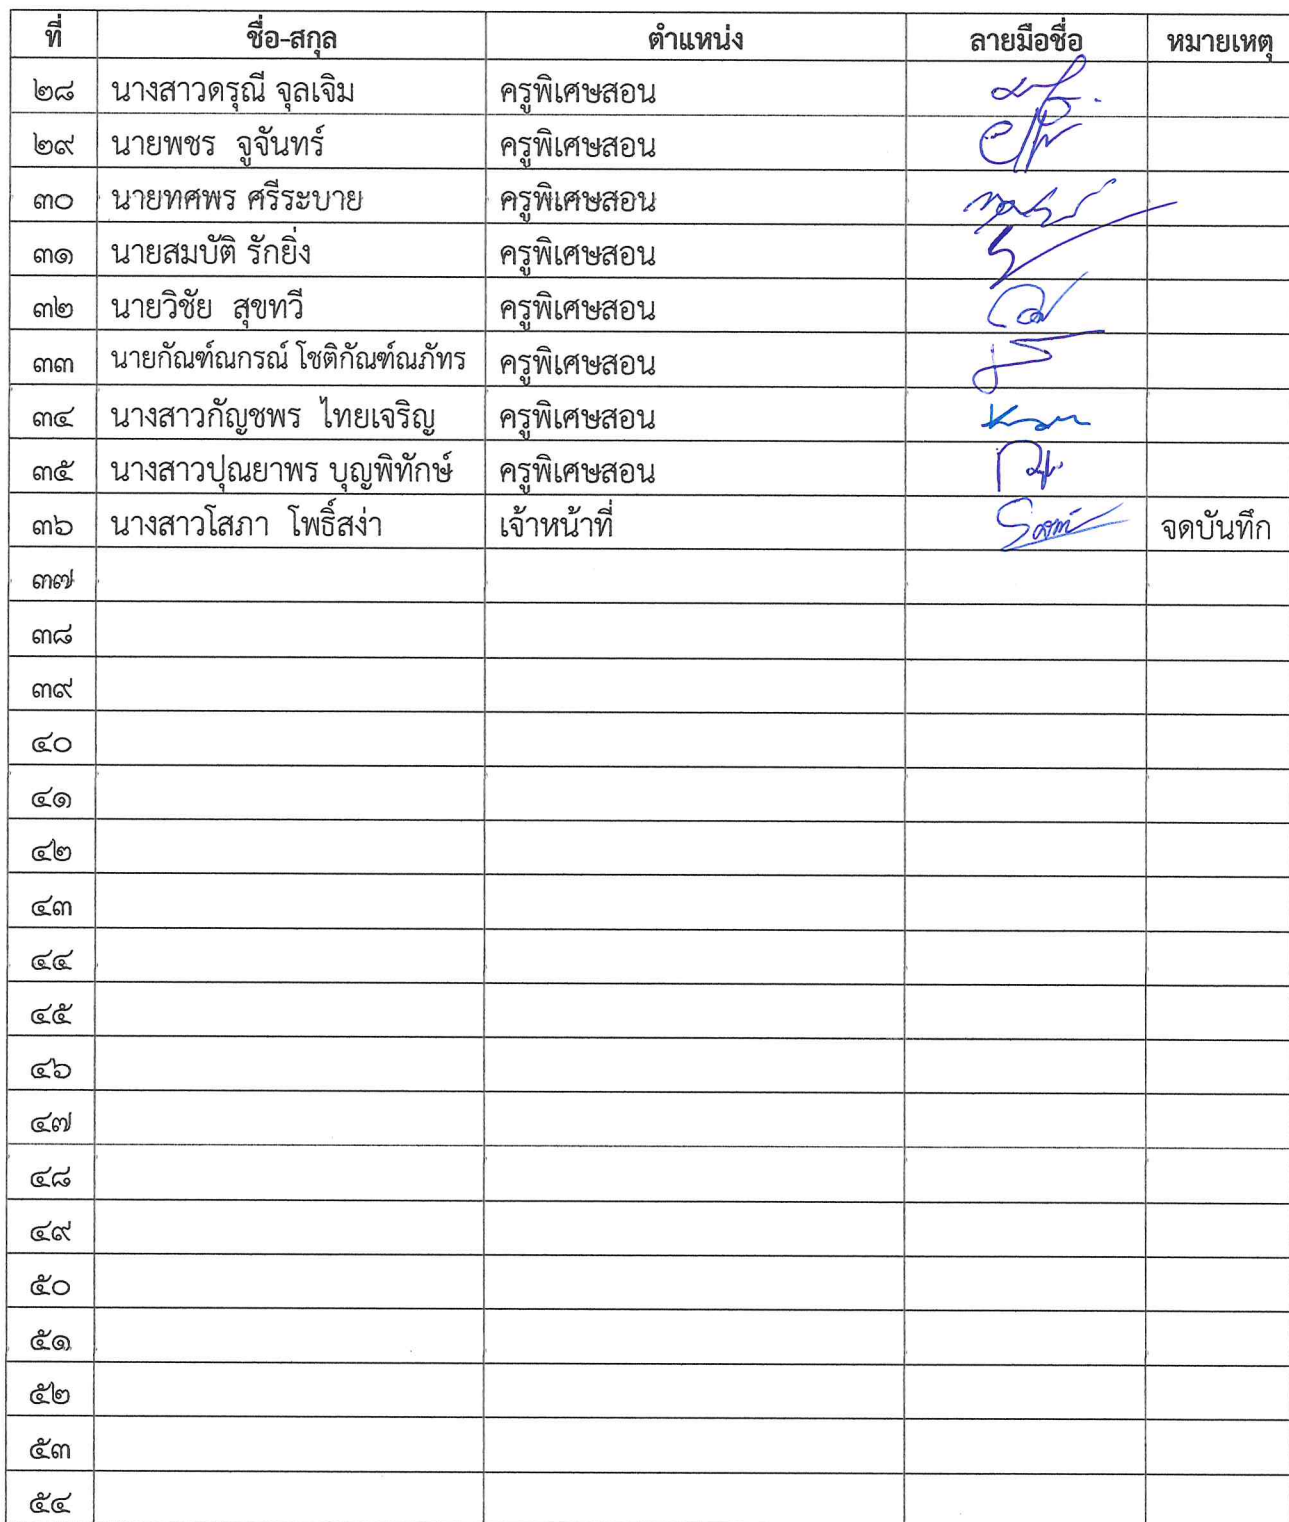 ที่ ชื่อ-สกุล ตำแหน่ง ลายมือชื่อ หมายเหตุ
๒๘ นางสาวดรุณี จุลเจิม ครูพิเศษสอน
๒๙ นายพชร จูจันทร์ ครูพิเศษสอน
๓๐ นายทศพร ศรีระบาย ครูพิเศษสอน
๓๑ นายสมบัติ รักยิ่ง ครูพิเศษสอน
๓๒ นายวิชัย สุขทวี ครูพิเศษสอน
๓๓ นายกัณฑ์ณกรณ์ โชติกัณฑ์ณภัทร ครูพิเศษสอน
๓๔ นางสาวกัญชพร ไทยเจริญ ครูพิเศษสอน
๓๕ นางสาวปุณยาพร บุญพิทักษ์ ครูพิเศษสอน
๓๖ นางสาวโสภา โพธิ์สง่า เจ้าหน้าที่ จดบันทึก
๓๗
๓๘
๓๙
๔๐
๔๑
๔๒
๔๓
๔๔
๔๕
๔๖
๔๗
๔๘
๔๙
๕๐
๕๑
๕๒
๕๓
๕๔